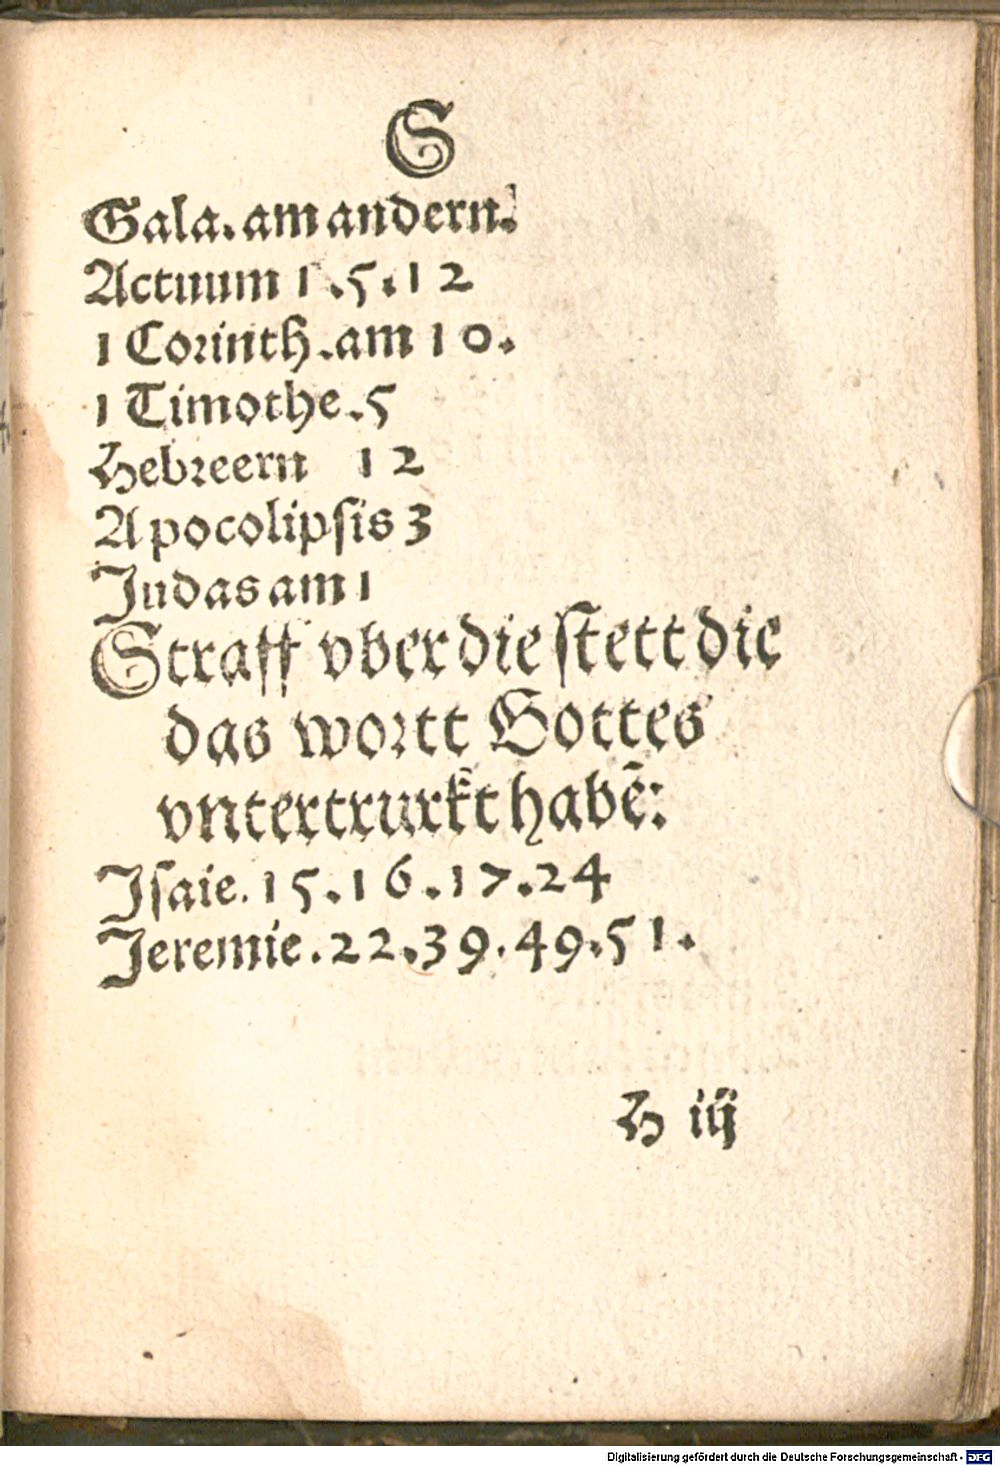 S
Gala. am andern.
Actuum 1.5.12
1 Corinth. am 10.
1 Timothe. 5
Hebreern 12
Apocolipsis 3
Judas am 1
Straff vber die stett die
das wortt Gottes
vntertrurkt habē:
Jsaie. 15.16.17.24
Jeremie. 22.39.49.51.
H iij
Digitalisierung gefördert durch die Deutsche Forschungsgemeinschaft - DFG